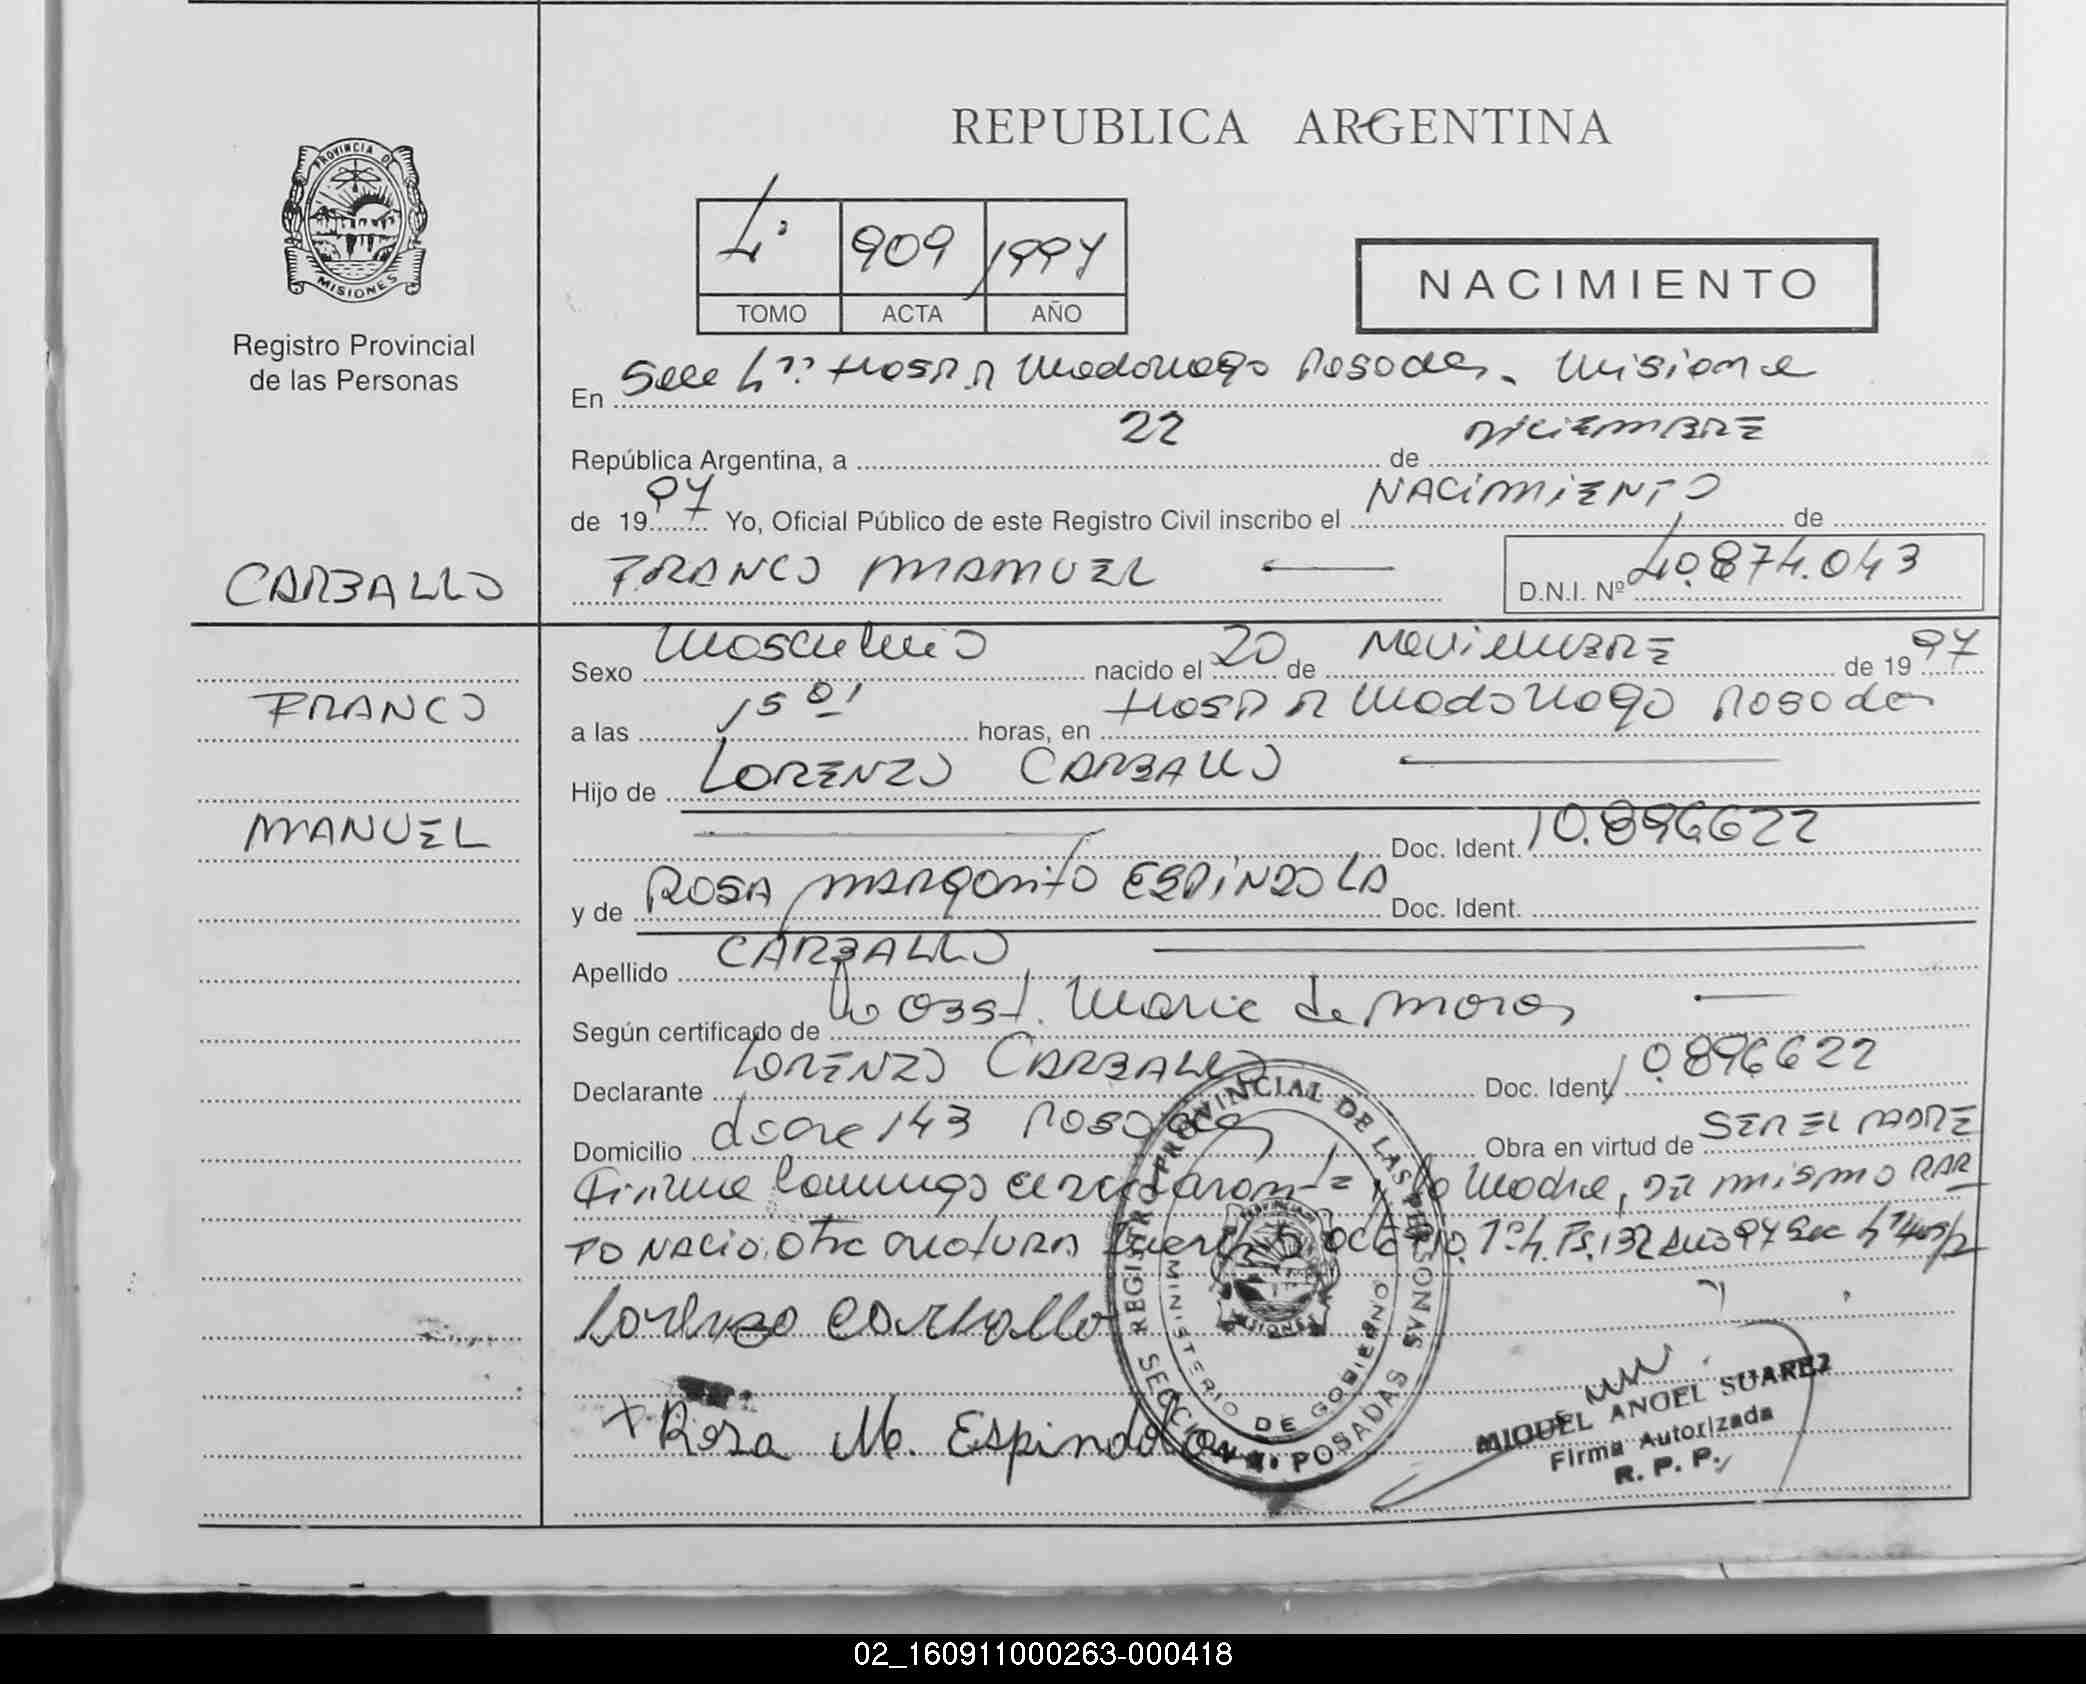 REPUBLICA ARGENTINA
PROVINCIA DE
MISIONES
Registro Provincial
de las Personas
4º 909 1997
TOMO ACTA AÑO
NACIMIENTO
En Secc 4ª Hosp R Madariaga Posadas. Misiones
República Argentina, a 22 de DICIEMBRE
de 1997 Yo, Oficial Público de este Registro Civil inscribo el NACIMIENTO de
CARBALLO
FRANCO MANUEL
D.N.I. Nº 40.874.043
Sexo Masculino nacido el 20 de NOVIEMBRE de 1997
FRANCO
a las 15 01 horas, en Hosp R Madariaga Posadas
Hijo de LORENZO CARBALLO
MANUEL
Doc. Ident. 10.896622
y de ROSA MARGARITA ESPINDOLA Doc. Ident.
Apellido CARBALLO
Según certificado de la Obst. Maria de Moras
Declarante LORENZO CARBALLO Doc. Ident. 10.896622
Domicilio 143 Posadas Obra en virtud de SER EL PADRE
Firma la Madre, DEL mismo PAR
TO NACIO. Otra criatura 97 Secc
Lorenzo Carballo
x Rosa M. Espindola
REGISTRO PROVINCIAL DE LAS PERSONAS
MINISTERIO DE GOBIERNO
MISIONES
SECCION 4ª POSADAS
MIGUEL ANGEL SUAREZ
Firma Autorizada
R. P. P.
02_160911000263-000418